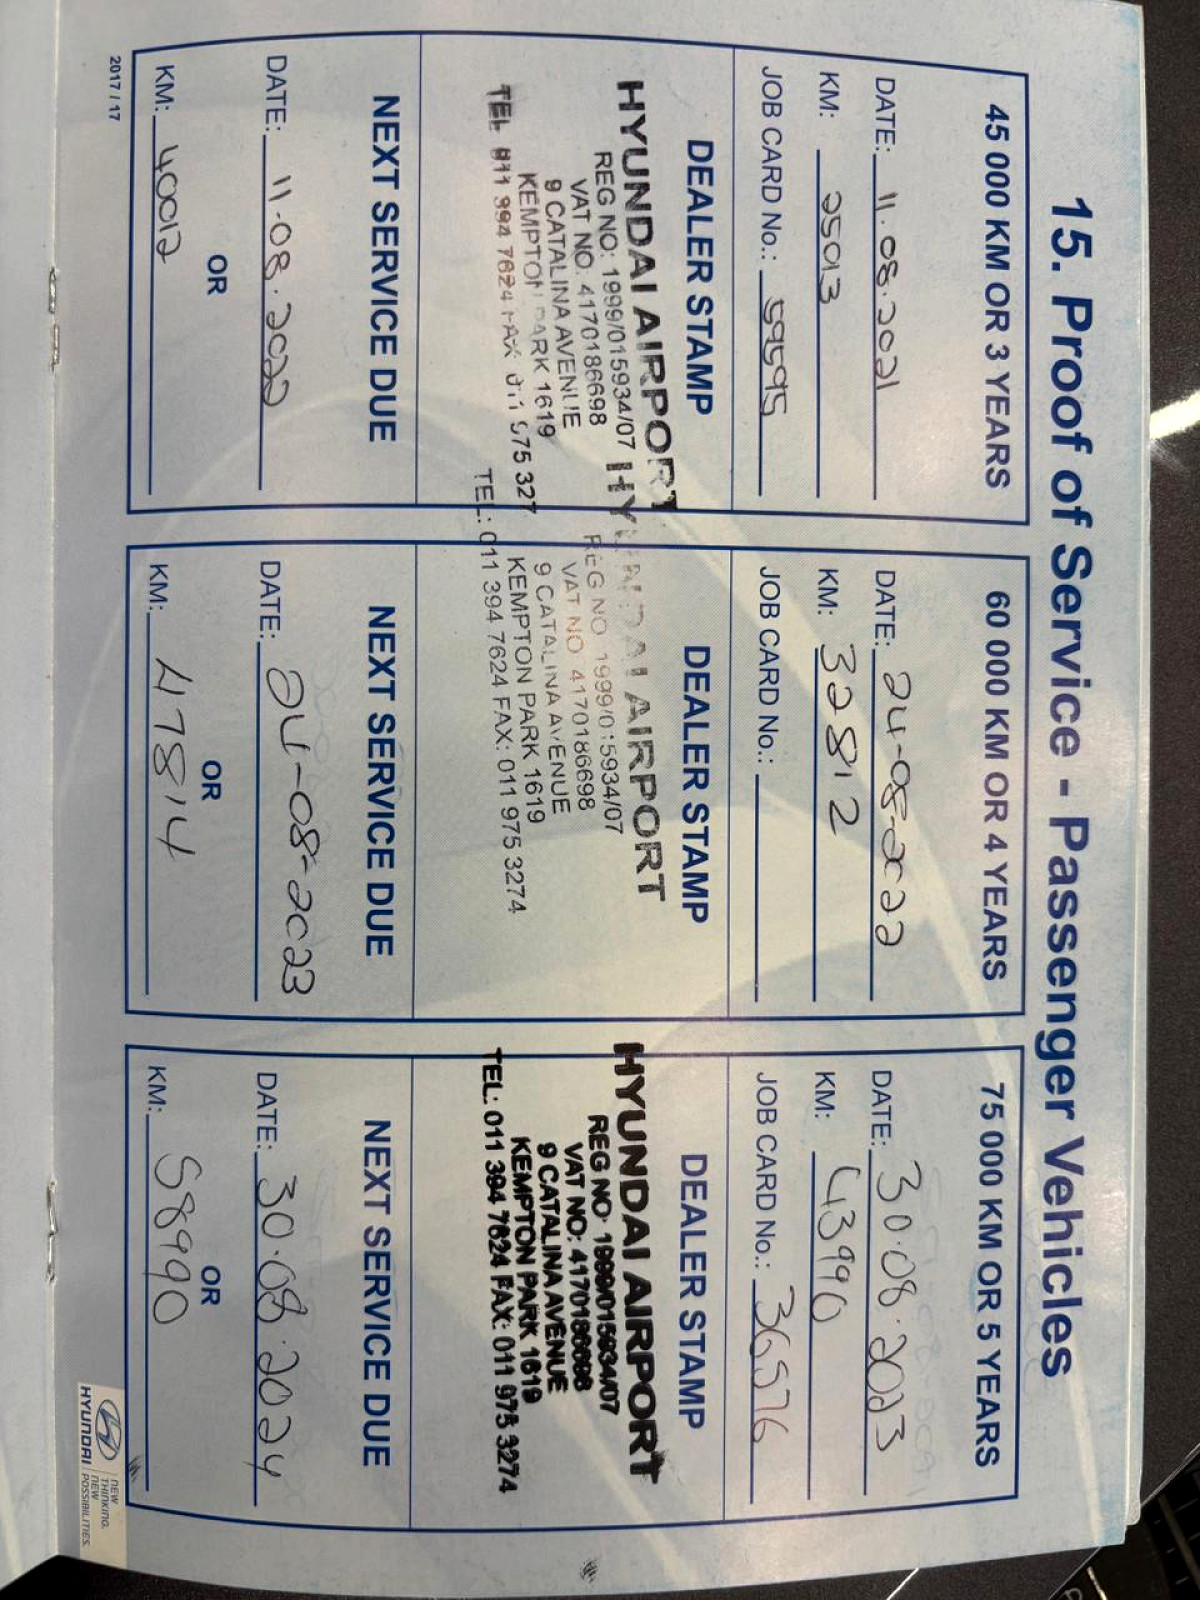 15. Proof of Service - Passenger Vehicles
45 000 KM OR 3 YEARS
DATE: 11.08.2021
KM: 25013
JOB CARD No.: 59595
DEALER STAMP
HYUNDAI AIRPORT
REG NO: 1999/015934/07
VAT NO. 4170186698
9 CATALINA AVENUE
KEMPTON PARK 1619
TEL 011 394 7624 FAX 011 975 327
NEXT SERVICE DUE
DATE: 11.08.2022
OR
KM: 40012
2017 / 17
60 000 KM OR 4 YEARS
DATE: 24-08-2022
KM: 32812
JOB CARD No.:
DEALER STAMP
HYUNDAI AIRPORT
REG NO 1999/015934/07
VAT NO 4170186698
9 CATALINA AVENUE
KEMPTON PARK 1619
TEL: 011 394 7624 FAX: 011 975 3274
NEXT SERVICE DUE
DATE: 24-08-2023
OR
KM: 47814
75 000 KM OR 5 YEARS
DATE: 30.08.2023
KM: 43990
JOB CARD No.: 36576
DEALER STAMP
HYUNDAI AIRPORT
REG NO: 1999/015934/07
VAT NO: 4170186698
9 CATALINA AVENUE
KEMPTON PARK 1619
TEL: 011 394 7624 FAX: 011 975 3274
NEXT SERVICE DUE
DATE: 30.08.2024
OR
KM: 58990
HYUNDAI
NEW
THINKING.
NEW
POSSIBILITIES.